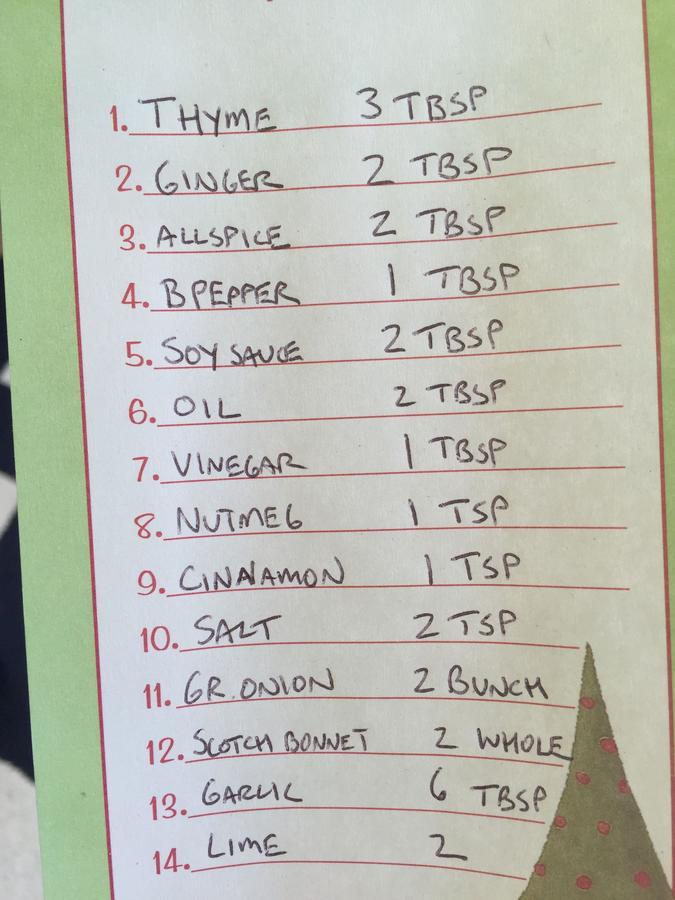 1. THYME 3 TBSP
2. GINGER 2 TBSP
3. ALLSPICE 2 TBSP
4. B PEPPER 1 TBSP
5. SOY SAUCE 2 TBSP
6. OIL 2 TBSP
7. VINEGAR 1 TBSP
8. NUTMEG 1 TSP
9. CINNAMON 1 TSP
10. SALT 2 TSP
11. GR. ONION 2 BUNCH
12. SCOTCH BONNET 2 WHOLE
13. GARLIC 6 TBSP
14. LIME 2